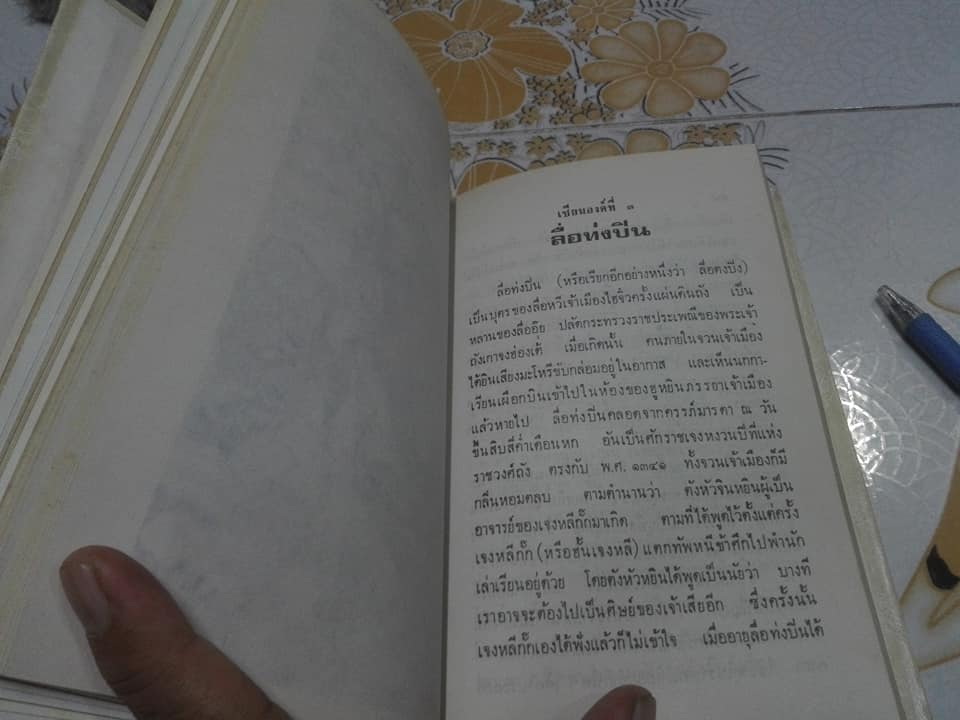 เซียนองค์ที่ ๓
ลื่อท่งปิน
ลื่อท่งปิ่น (หรือเรียกอีกอย่างหนึ่งว่า ลื่อตงปิง)
เป็นบุตรของลื่อหวีเจ้าเมืองไฮจิ๋วครั้งแผ่นดินถัง เป็น
หลานของลื่ออ๊ย ปลัดกระทรวงราชประเพณีของพระเจ้า
ถังเกาจงฮ่องเต้ เมื่อเกิดนั้น คนภายในจวนเจ้าเมือง
ได้ยินเสียงมะโหรีขับกล่อมอยู่ในอากาศ และเห็นนกกา-
เรียนเผือกบินเข้าไปในห้องของฮูหยินภรรยาเจ้าเมือง
แล้วหายไป ลื่อท่งปิ่นคลอดจากครรภ์มารดา ณ วัน
ขึ้นสิบสี่ค่ำเดือนหก อันเป็นศักราชเจงหงวนปีที่แห่ง
ราชวงศ์ถัง ตรงกับ พ.ศ. ๑๓๔๑ ทั้งจวนเจ้าเมืองก็มี
กลิ่นหอมตลบ ตามตำนานว่า ตังหัวจินหยินผู้เป็น
อาจารย์ของเจงหลีกั๊กมาเกิด ตามที่ได้พูดไว้ตั้งแต่ครั้ง
เจงหลีกั๊ก (หรือฮั้นเจงหลี) แตกทัพหนีข้าศึกไปพำนัก
เล่าเรียนอยู่ด้วย โดยตังหัวหยินได้พูดเป็นนัยว่า บางที
เราอาจจะต้องไปเป็นศิษย์ของเจ้าเสียอีก ซึ่งครั้งนั้น
เจงหลีกั๊กเองได้ฟังแล้วก็ไม่เข้าใจ เมื่ออายุลื่อท่งปิ่นได้